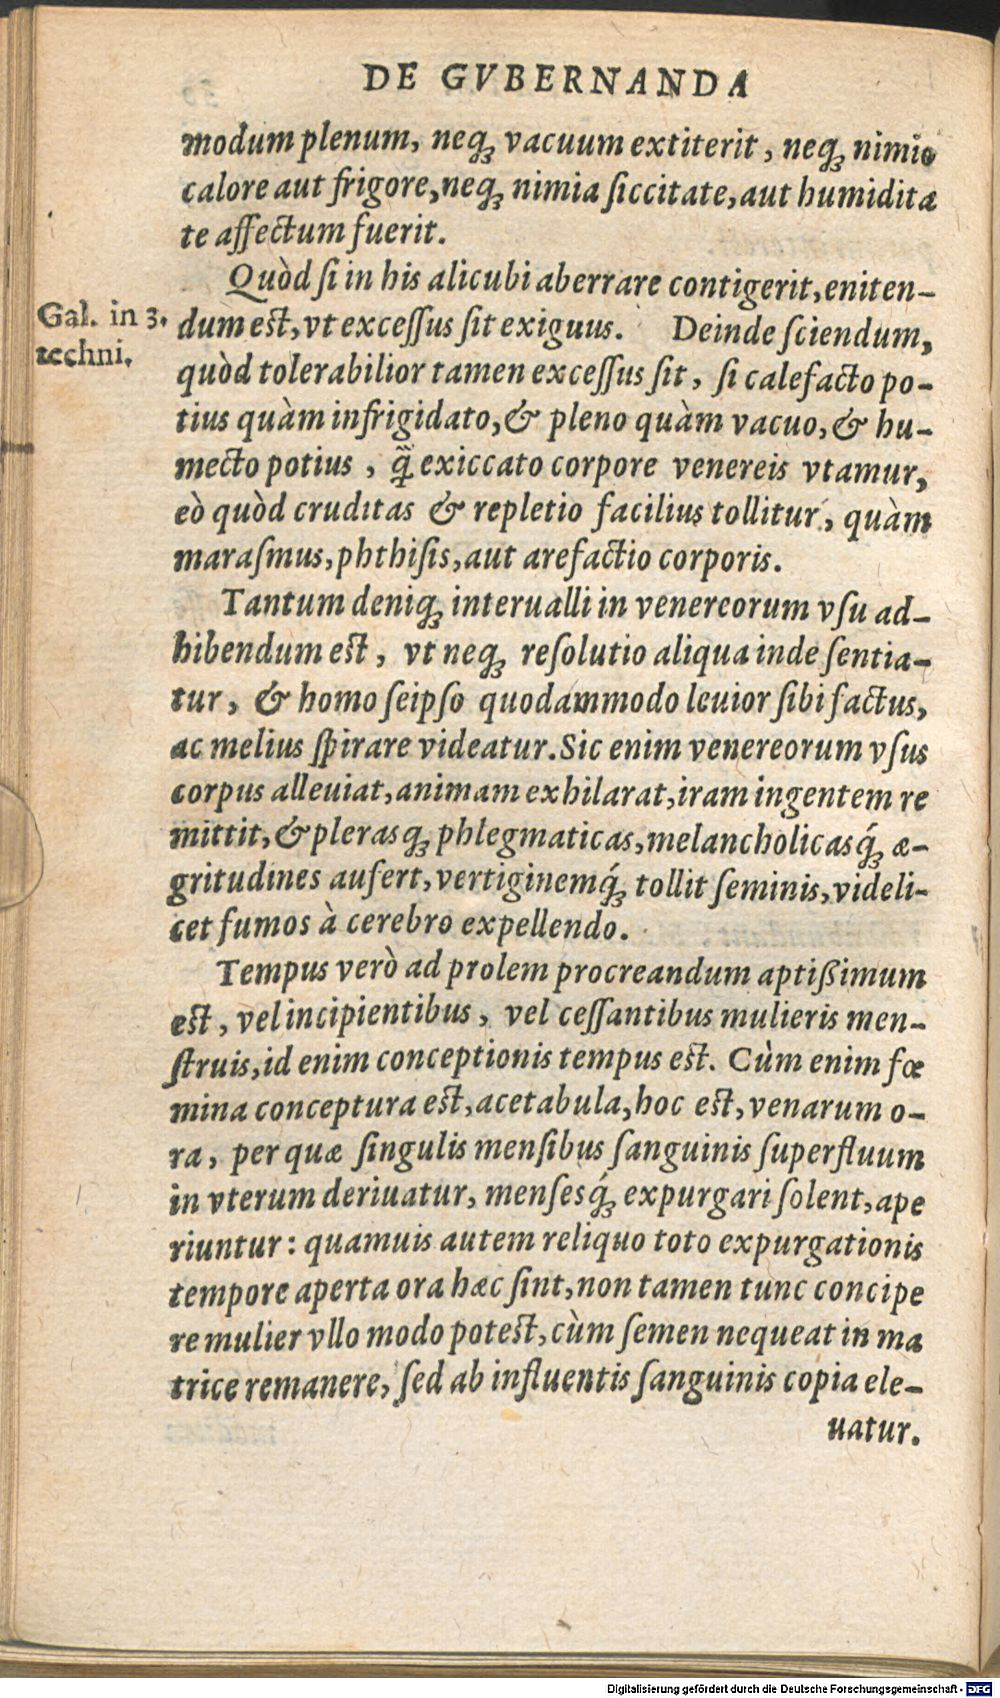 DE GVBERNANDA
modum plenum, neqꝫ vacuum extiterit, neqꝫ nimio
calore aut frigore, neqꝫ nimia ſiccitate, aut humidita
te affectum fuerit.
Quòd ſi in his alicubi aberrare contigerit, eniten-
Gal. in 3.
techni.
dum eſt, vt exceſſus ſit exiguus. Deinde ſciendum,
quòd tolerabilior tamen exceſſus ſit, ſi calefacto po-
tius quàm infrigidato, & pleno quàm vacuo, & hu-
mecto potius, q̃ exiccato corpore venereis vtamur,
eò quòd cruditas & repletio facilius tollitur, quàm
maraſmus, phthiſis, aut arefactio corporis.
Tantum deniqꝫ interualli in venereorum vſu ad-
hibendum eſt, vt neqꝫ reſolutio aliqua inde ſentia-
tur, & homo ſeipſo quodammodo leuior ſibi factus,
ac melius ſpirare videatur. Sic enim venereorum vſus
corpus alleuiat, animam exhilarat, iram ingentem re
mittit, & plerasqꝫ phlegmaticas, melancholicasq́ꝫ æ-
gritudines aufert, vertiginemq́ꝫ tollit ſeminis, videli-
cet fumos à cerebro expellendo.
Tempus verò ad prolem procreandum aptißimum
eſt, vel incipientibus, vel ceſſantibus mulieris men-
ſtruis, id enim conceptionis tempus eſt. Cùm enim fœ
mina conceptura eſt, acetabula, hoc eſt, venarum o-
ra, per quæ ſingulis menſibus ſanguinis ſuperfluum
in vterum deriuatur, menſesq́ꝫ expurgari ſolent, ape
riuntur: quamuis autem reliquo toto expurgationis
tempore aperta ora hæc ſint, non tamen tunc concipe
re mulier vllo modo poteſt, cùm ſemen nequeat in ma
trice remanere, ſed ab influentis ſanguinis copia ele-
uatur.
Digitalisierung gefördert durch die Deutsche Forschungsgemeinschaft - DFG